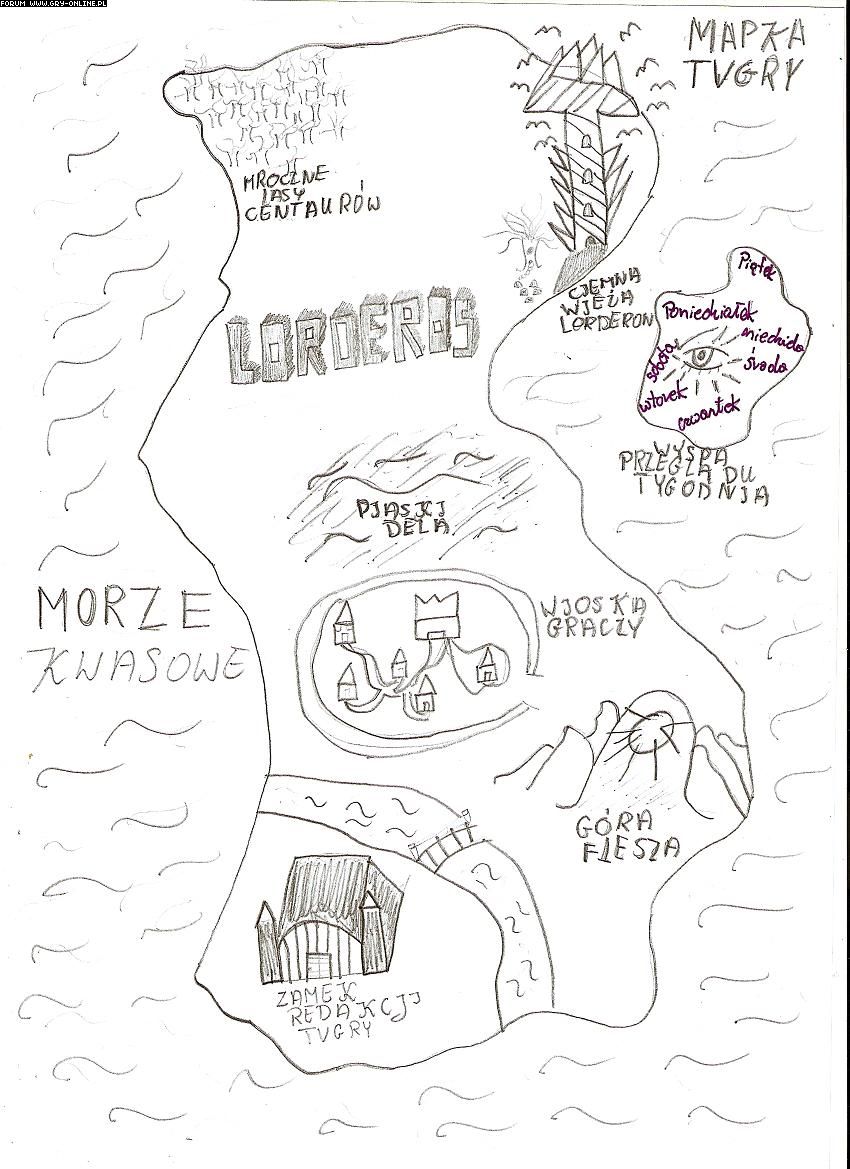 FORUM WWW.GRY-ONLINE.PL
MAPKA
TVGRY
MROCZNE
LASY
CENTAURÓW
CIEMNA
WIEŻA
LORDERON
Piątek
Poniedziałek
niedziela
środa
sobota
wtorek
czwartek
LORDEROS
WYSPA
PRZEGLĄDU
TYGODNIA
PIASKI
DELA
MORZE
KWASOWE
WIOSKA
GRACZY
GÓRA
FLESZA
ZAMEK
REDAKCJI
TVGRY